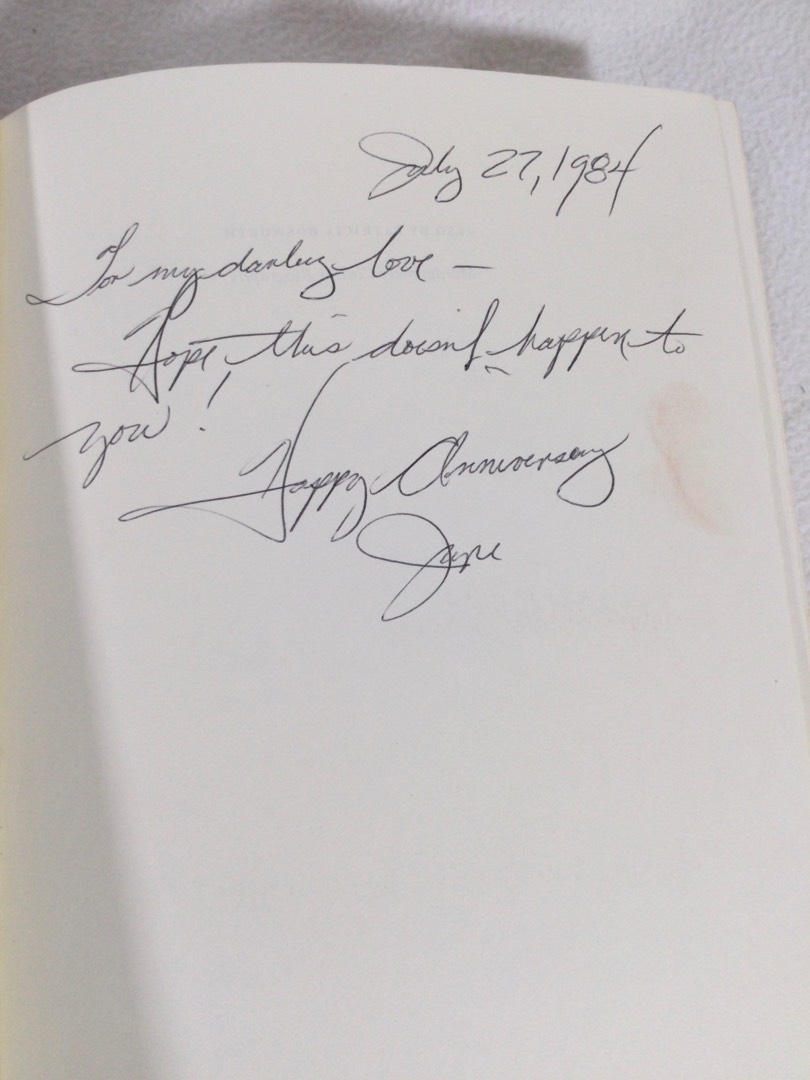 July 27, 1984
For my darling love —
Hope this doesn't happen to
you!
Happy Anniversary
Jane